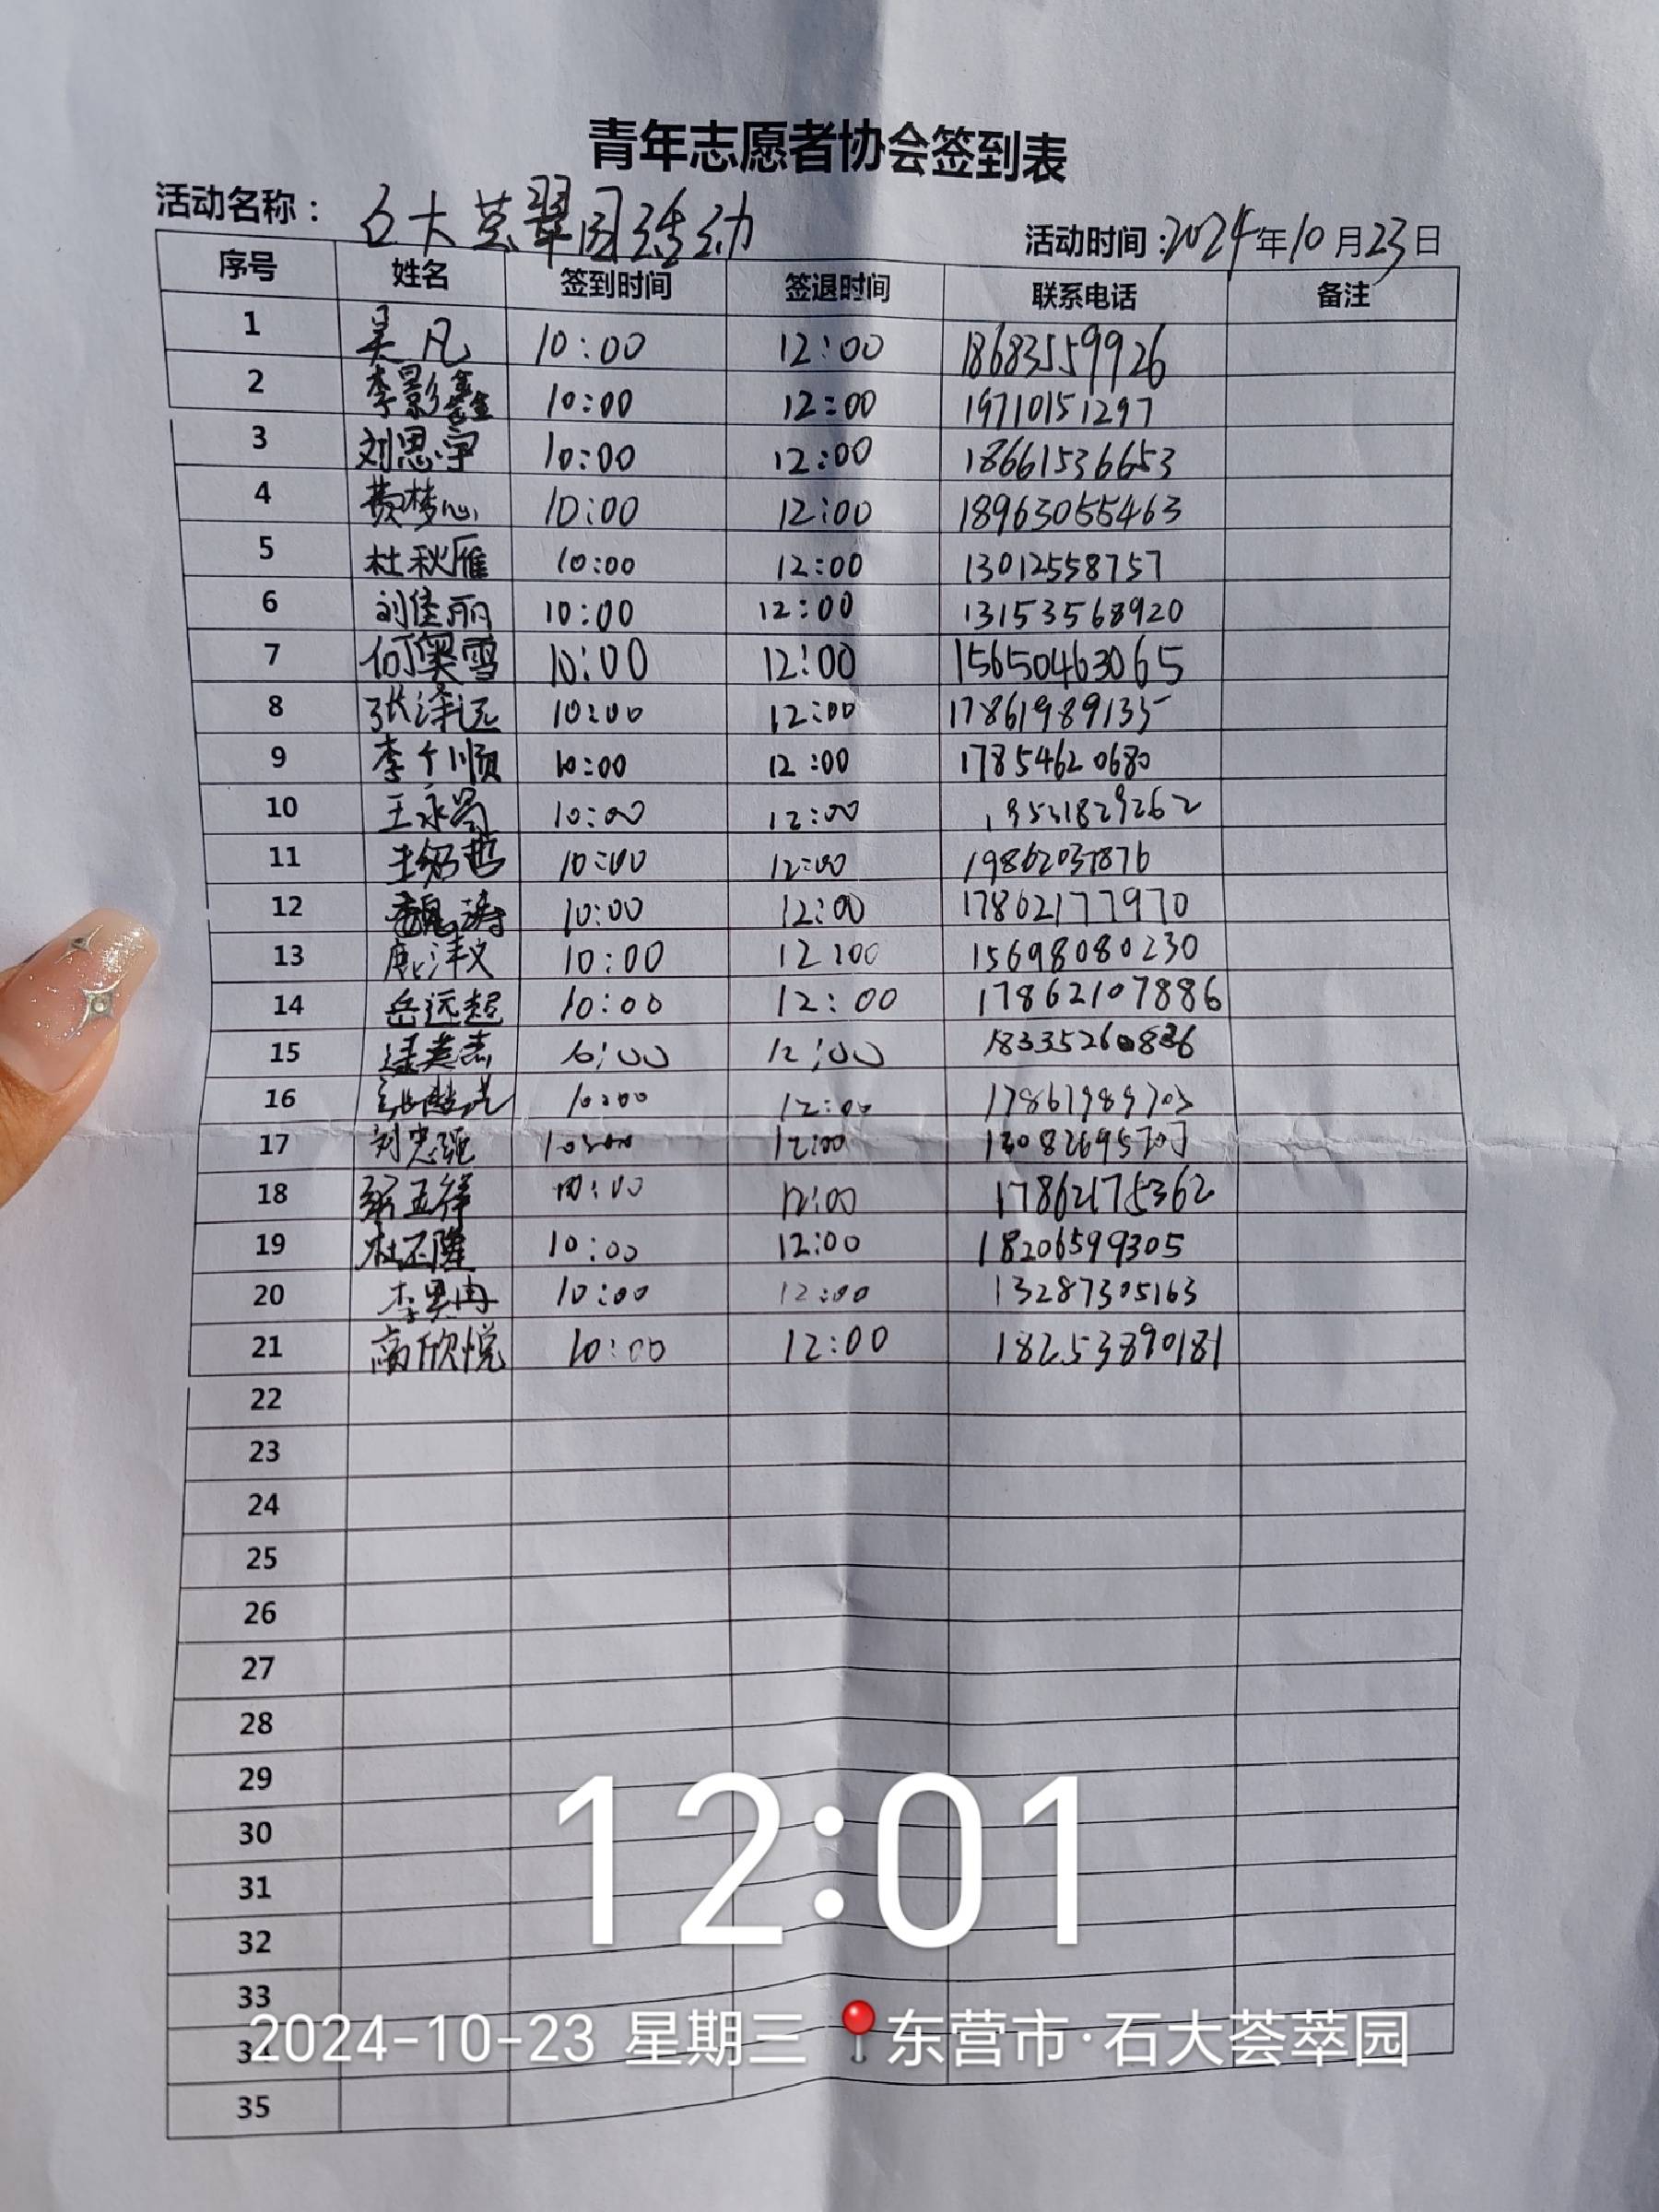 青年志愿者协会签到表
活动名称： 石大荟翠园活动 活动时间：2024年10月23日
序号 姓名 签到时间 签退时间 联系电话 备注
1 吴凡 10:00 12:00 18683559926
2 李影鑫 10:00 12:00 19710151297
3 刘思宇 10:00 12:00 18661536653
4 费梦心 10:00 12:00 18963055463
5 杜秋雁 10:00 12:00 13012558757
6 刘佳丽 10:00 12:00 13153568920
7 何奥雪 10:00 12:00 15650463065
8 张泽远 10:00 12:00 17861989135
9 李个顺 10:00 12:00 17854620680
10 10:00 12:00
11 10:00 12:00 19862037876
12 魏涛 10:00 12:00 17862177970
13 10:00 12:00 15698080230
14 岳远超 10:00 12:00 17862107886
15 12:00
16 10:00 12:00
17 刘忠强 10:00 12:00
18 10:00 12:00 17862175362
19 10:00 12:00 18206599305
20 10:00 12:00 13287305163
21 高欣悦 10:00 12:00 18253890181
22
23
24
25
26
27
28
29
30
31
32
33
34
35
12:01
2024-10-23 星期三 东营市·石大荟萃园